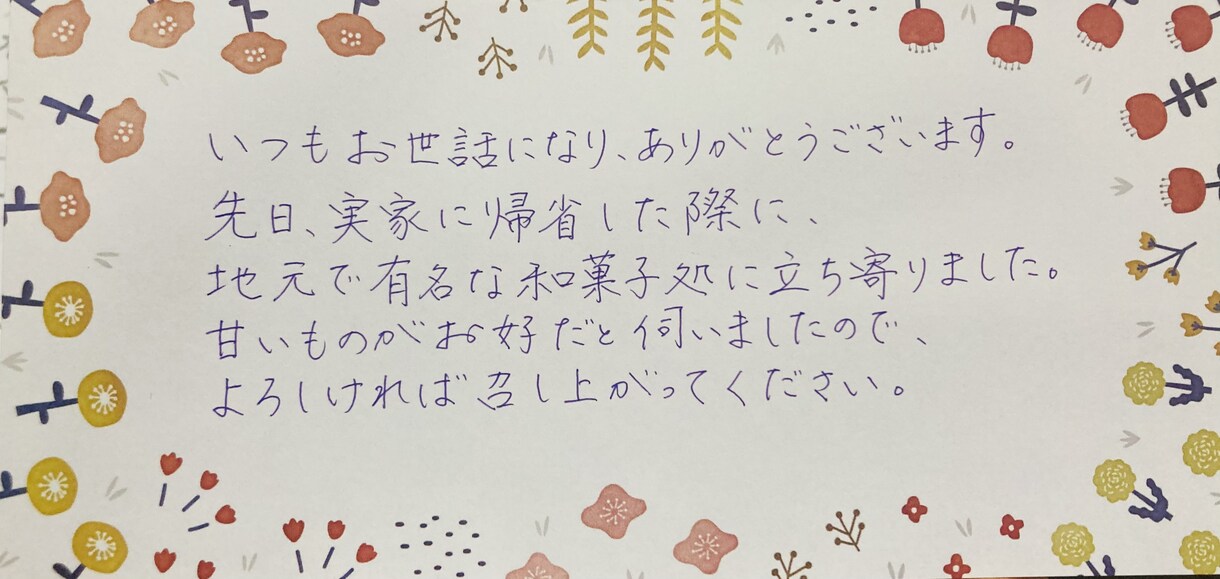 いつもお世話になり、ありがとうございます。
先日、実家に帰省した際に、
地元で有名な和菓子処に立ち寄りました。
甘いものがお好だと伺いましたので、
よろしければ召し上がってください。